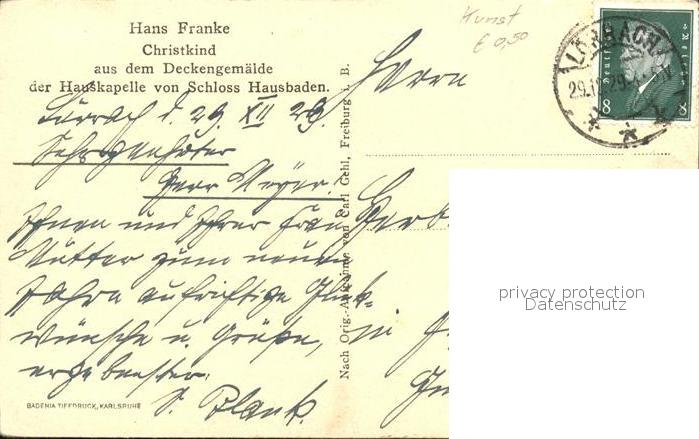 Hans Franke
Christkind
aus dem Deckengemälde
der Hauskapelle von Schloss Hausbaden.
Lörrach d. 29. XII 29.
Sehr geehrter
Herr Meyer!
Ihnen und Ihrer Frau
Mutter zum neuen
Jahre aufrichtige Glück-
wünsche u. Grüße,
ergebenster
S. Blank.
BADENIA TIEFDRUCK, KARLSRUHE
Nach Orig.-Aufnahme von Carl Gehl, Freiburg i. B.
Kunst
€ 0,50
Herrn
in
LÖRRACH
29.12.29
8 8
privacy protection
Datenschutz